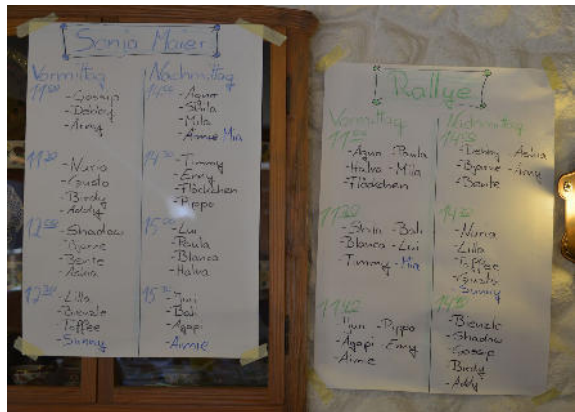 Sonja Maier
Vormittag
11:00
- Gossip
- Debby
- Army
11:30
- Nuria
- Gusto
- Birdy
- Addy
12:00
- Shadow
- Bjarne
- Bente
- Askia
12:30
- Lilla
- Bienzle
- Toffee
- Sunny
Nachmittag
14:00
- Aqua
- Shila
- Mila
- Amie Mia
14:30
- Timmy
- Emy
- Flöckchen
- Pippo
15:00
- Lui
- Paula
- Blanca
- Halva
15:30
- Yuri
- Bali
- Agapi
Rallye
Vormittag
11:00
- Aqua - Paula
- Halva - Mila
- Flöckchen
11:20
- Shila - Bali
- Blanca - Lui
- Timmy - Mia
11:40
- Yuri - Pippo
- Agapi - Emy
Nachmittag
14:00
- Debby - Askia
- Bjarne - Army
- Bente
- Nuria
- Lilla
- Toffee
- Gusto
- Sunny
- Bienzle
- Shadow
- Gossip
- Birdy
- Addy